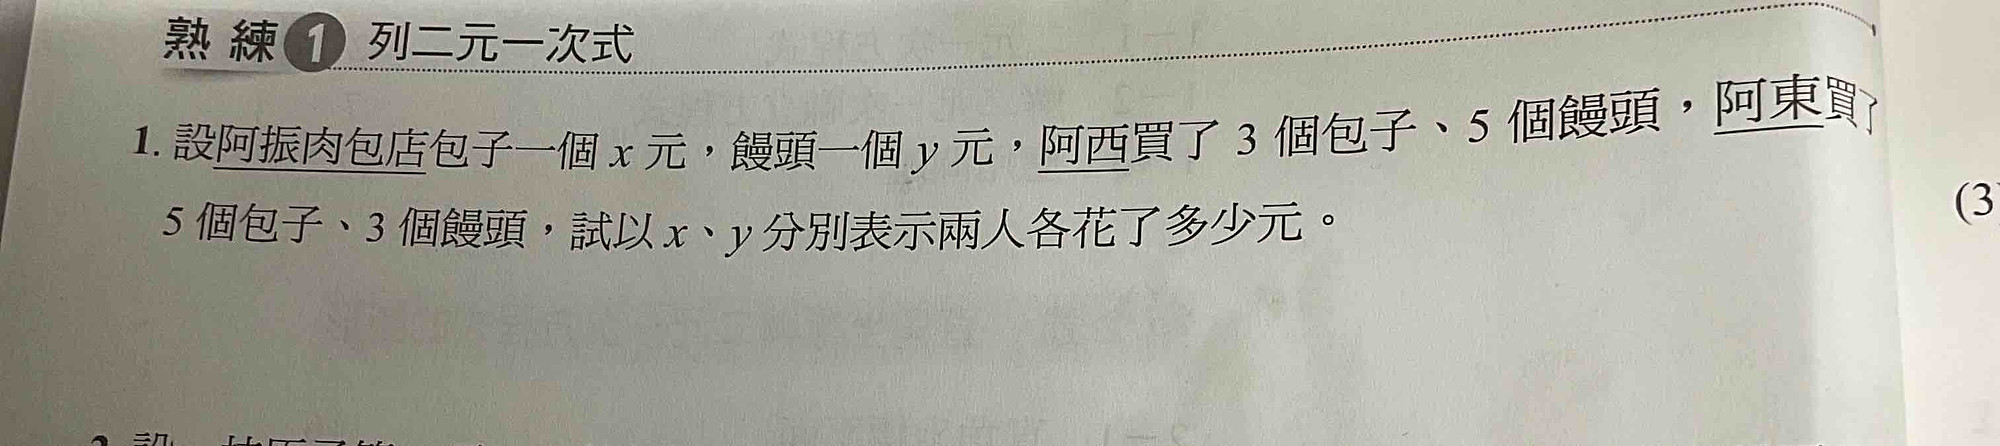 熟練1 列二元一次式
1. 設阿振肉包店包子一個 x 元，饅頭一個 y 元，阿西買了 3 個包子、5 個饅頭，阿東買了
5 個包子、3 個饅頭，試以 x、y 分別表示兩人各花了多少元。
(3)